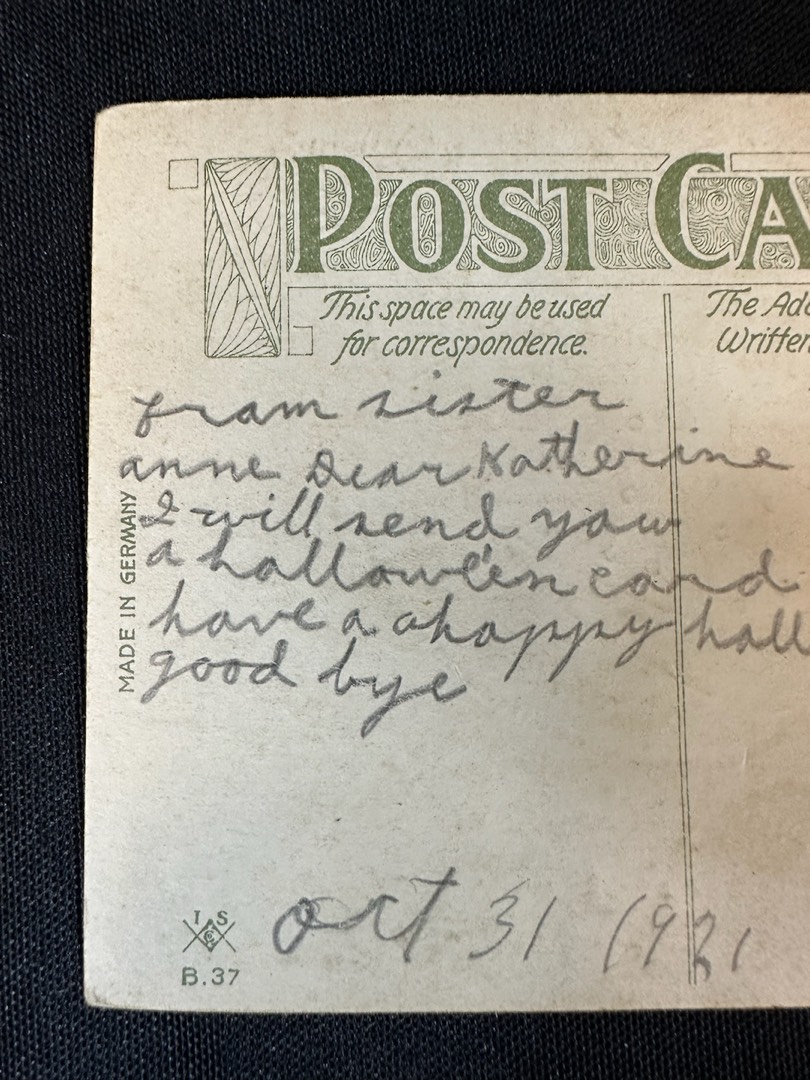 POST CA
This space may be used
for correspondence.
The Add
Written
fram sister
anne Dear Katherine
I will send yow
a hallowe'en card
have a ahappy hall
good bye
MADE IN GERMANY
I S
B.37
oct 31 1921